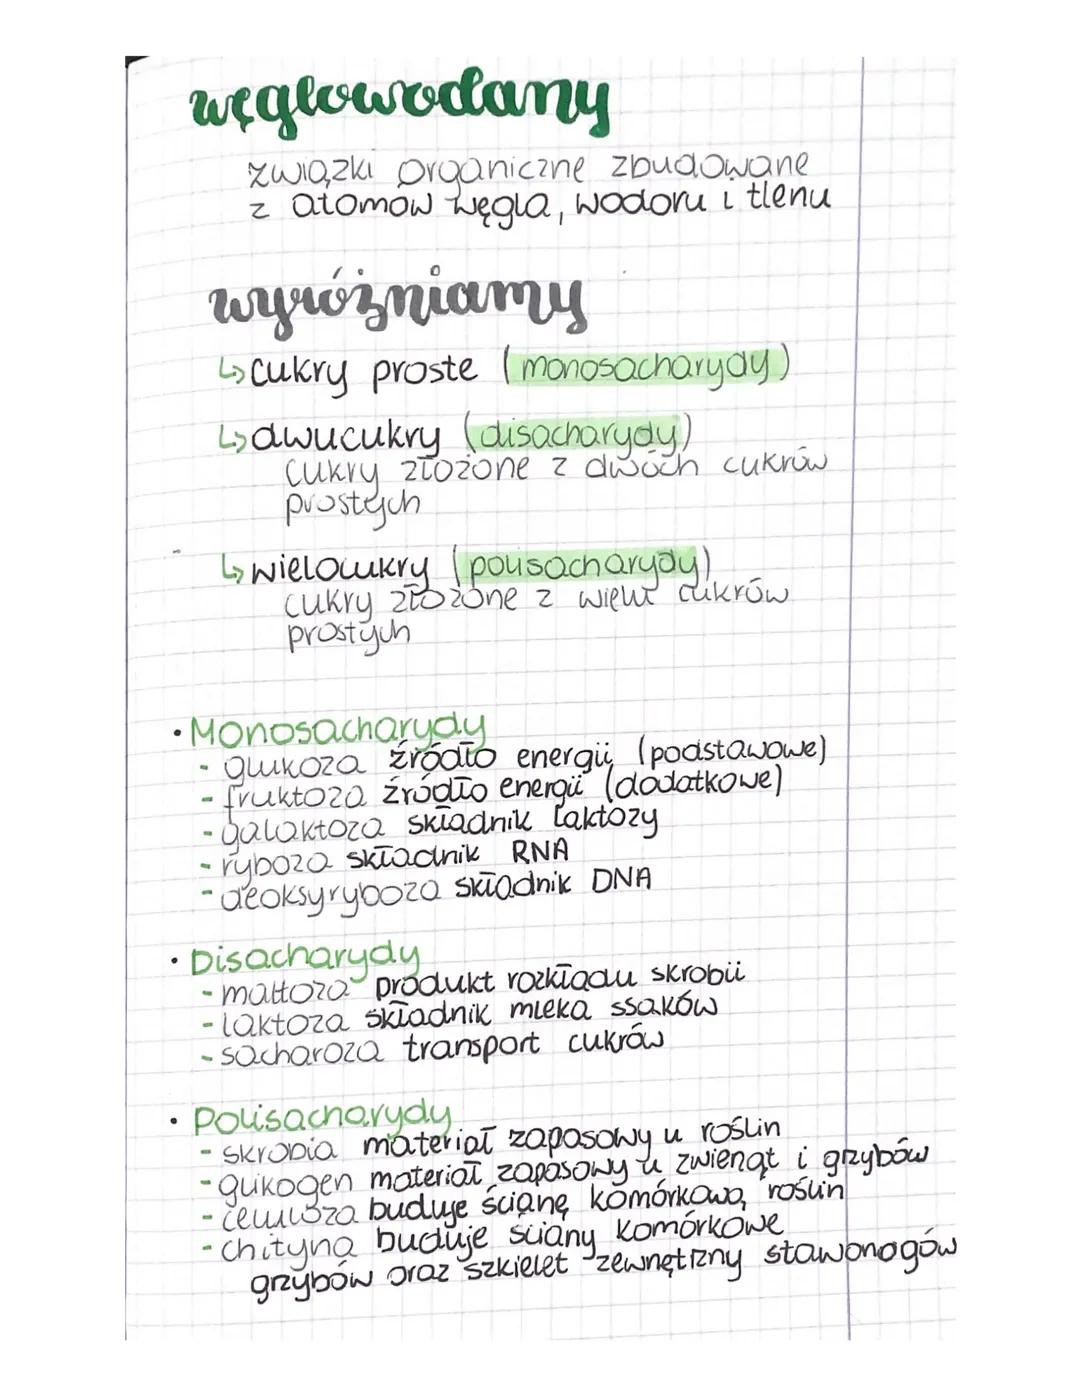 węglowodany
związki organiczne zbudowane
z atomów węgla, wodoru i tlenu
wyróżniamy
↳ cukry proste (monosacharydy)
↳ dwucukry (disacharydy)
cukry złożone z dwóch cukrów
prostych
↳ wielocukry (polisacharydy)
cukry złożone z wielu cukrów
prostych
• Monosacharydy
- glukoza źródło energii (podstawowe)
- fruktoza źródło energii (dodatkowe)
- galaktoza składnik laktozy
- ryboza składnik RNA
- deoksyryboza składnik DNA
• Disacharydy
- maltoza produkt rozkładu skrobii
- laktoza składnik mleka ssaków
- sacharoza transport cukrów
• Polisacharydy
- skrobia materiał zapasowy u roślin
- glikogen materiał zapasowy u zwierząt i grzybów
- celuloza buduje ścianę komórkową roślin
- chityna buduje ściany komórkowe
grzybów oraz szkielet zewnętrzny stawonogów